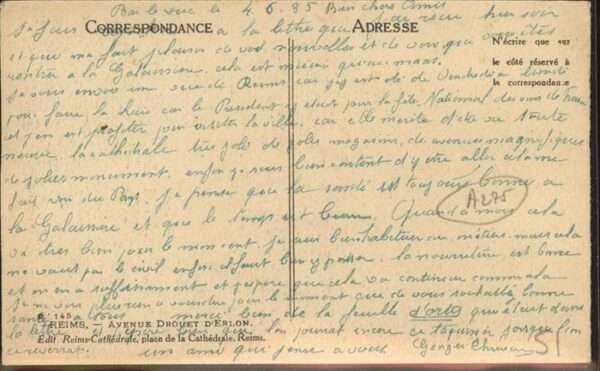 Bar le Duc le 4.6.35 Bien chers Amis
CORRESPONDANCE
ADRESSE
N'écrire que sur
le côté réservé à
la correspondance
Je fais à la lettre que j'ai reçu hier soir
et qui m'a fait plaisir de vos nouvelles et de voir que vous êtes
rentré à la Galaisière, cela est mieux qu'au
Je vous envoie une vue de Reims car j'y est été de Vendredi à lundi
pour faire la haie car le Président y était pour la fête National des vins de France
et j'en est profiter pour visiter la ville, car elle mérite d'être vu toute
neuve, la cathédrale très jolie de jolies magasins, de avenues magnifiques
de jolies monument, enfin je suis bien content d'y être aller cela me
fait voir du Pays. Je pense que la santé est toujours bonne a
la Galaisière et que le temps est beau. Quand à moi cela
va très bien pour le moment je suis bien habituer au métier mais cela
ne vaut pas le civil enfin il faut bien y passer. la nourriture est bonne
et on en a suffisamment et j'espère que cela va continuer comme cela
Je ne vois plus rien à vous dire pour le moment que de vous souhaiter bonne
santé à tous merci bien de la feuille d'ortie qui était dans
la lettre et j'espère bien que l'on pourrait encore ce taquiner lorsque l'on
ce reverrat. un ami que pense a vous Georges
A275
51
N° 145
REIMS. — AVENUE DROUET D'ERLON.
Edit. Reims-Cathédrale, place de la Cathédrale, Reims.